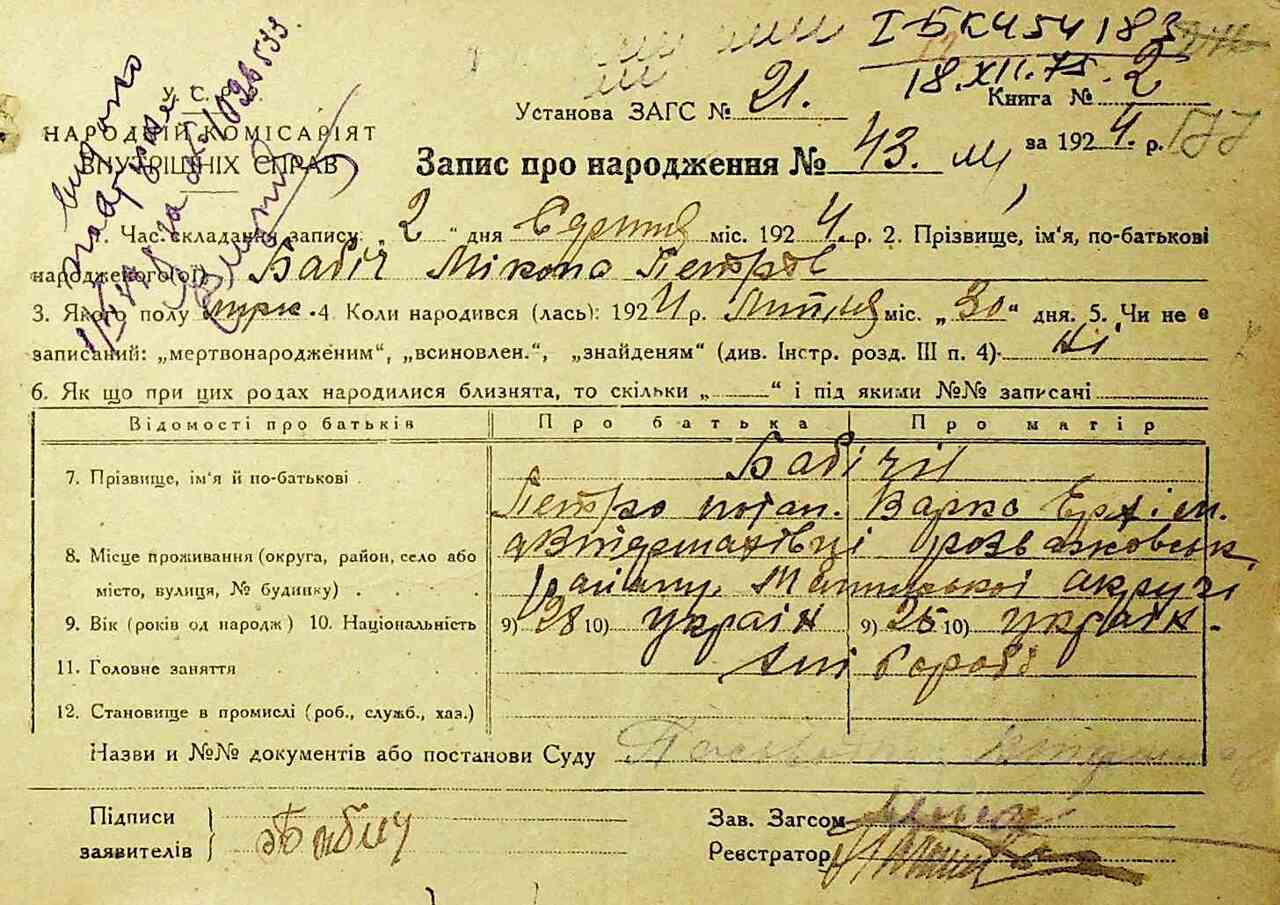 ІБК 454183
18.XII.75.
У. С. Р. Р.
НАРОДНІЙ КОМІСАРІЯТ
ВНУТРІШНІХ СПРАВ
видано
Установа ЗАГС № 21.
Книга № 2
Запис про народження № 43. м
за 1924. р. 177
1. Час складання запису: „2“ дня Серпня міс. 1924 р. 2. Прізвище, ім'я, по-батькові
народженого(ої) Бабіч Мікола Петров
3. Якого полу муж. 4. Коли народився (лась): 1924 р. Липня міс. „30“ дня. 5. Чи не є
записаний: „мертвонародженим“, „всиновлен.“, „знайденям“ (див. Інстр. розд. III п. 4) Ні
6. Як що при цих родах народилися близнята, то скільки „ “ і під якими №№ записані
Відомості про батьків Про батька Про матір
7. Прізвище, ім'я й по-батькові Бабічи
Петро потап. Варка
8. Місце проживання (округа, район, село або розважовськ
місто, вулиця, № будинку) району, округі
9. Вік (років од народж) 10. Національність 9) 28 10) україн 9) 25 10) україн.
11. Головне заняття хліборобі
12. Становище в промислі (роб., служб., хаз.)
Назви и №№ документів або постанови Суду
Підписи
заявителів Бабич
Зав. Загсом
Реєстратор